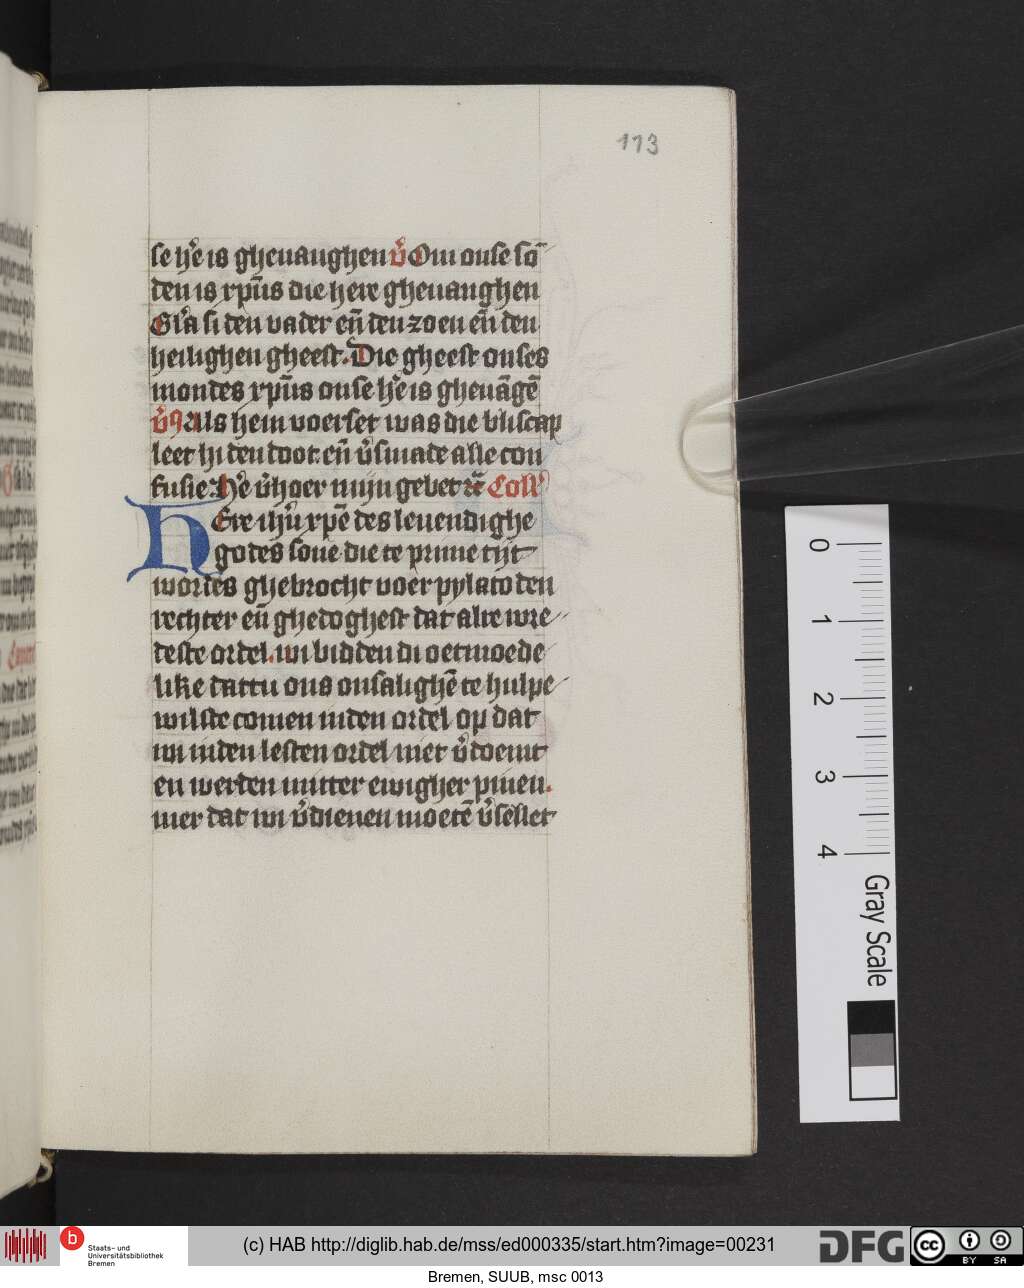 113
se h̄e is gheuanghen v̓ Om onse sō
den is xpūs die here gheuanghen
Gl̓a si den vader en̄ den zoen en̄ den
heilighen gheest. Die gheest onses
mondes xpūs onse h̄e is gheuāgē
v̓9 Als hem voerset was die bliscap
leet hi den doot. en̄ v̓smade alle con
fusie. H̄e v̓hoer mijn gebet Coll̓
HEre ih̄u xpē des leuendighe
godes sone die te prime tijt
wordes ghebrocht voer pylato den
rechter en̄ ghedoghest dat alre wre
deste ordel. wi bidden di oetmoede
like dattu ons onsalighē te hulpe
wilste comen inden ordel op dat
wi inden lesten ordel niet v̓doemt
en werden mitter ewigher pinen.
mer dat wi v̓dienen moetē v̓sellet
0
1
2
3
4
Gray Scale
b Staats- und
Universitätsbibliothek
Bremen
(c) HAB http://diglib.hab.de/mss/ed000335/start.htm?image=00231
DFG
cc BY SA
Bremen, SUUB, msc 0013